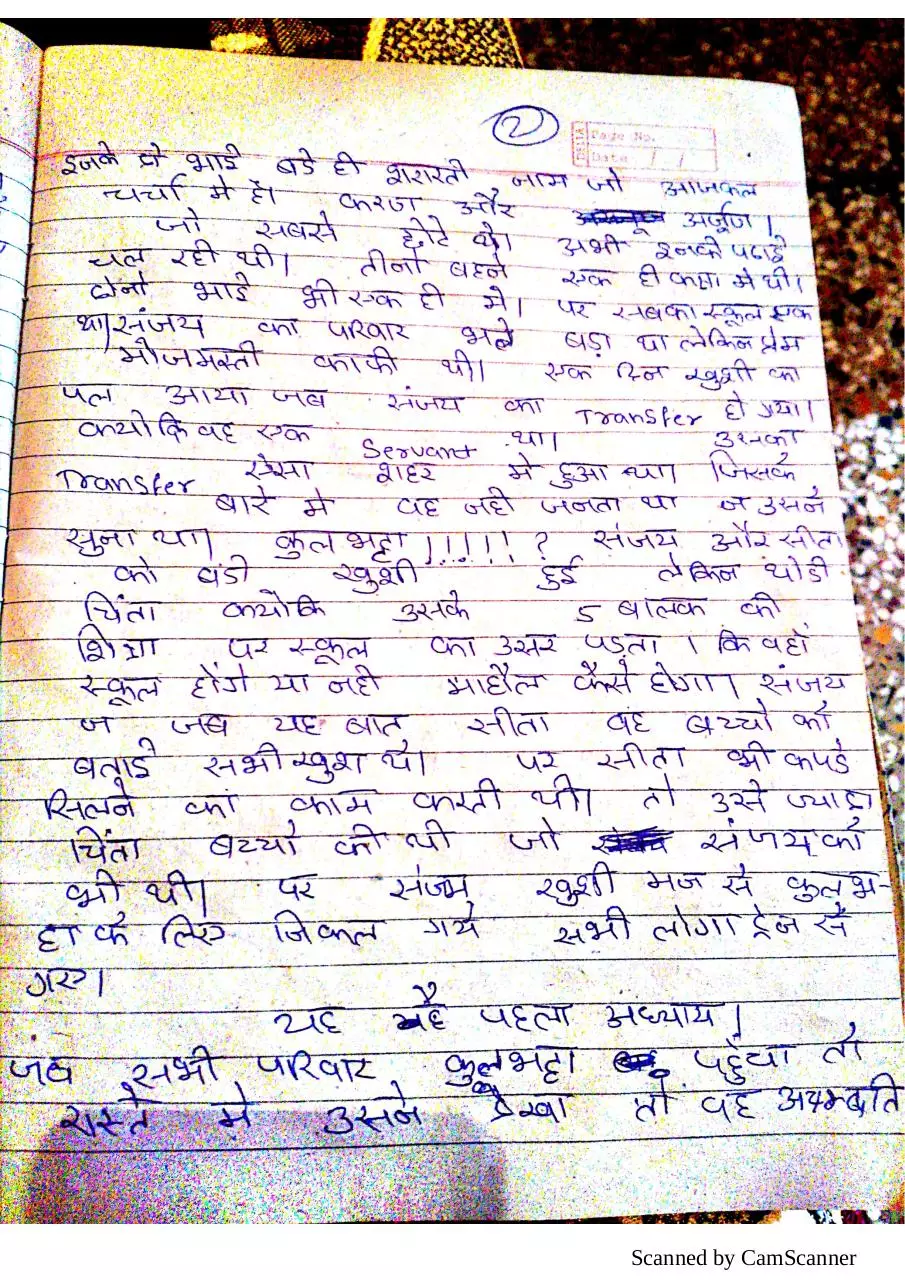 2
Page No.
Date / /
इनके दो भाई बडे ही शरारती नाम जो आजकल
चर्चा मे है। करण और अर्जुण।
जो सबसे छोटे थे। अभी इनकी पढाई
चल रही थी। तीनो बहने एक ही कक्षा मे थी।
दोनो भाई भी एक ही मे। पर सबका स्कूल एक
था। संजय का परिवार भले बड़ा था लेकिन प्रेम
मोजमस्ती काफी थी। एक दिन खुशी का
पल आया जब संजय का Transfer हो गया।
क्योकि वह एक Servant था। उसका
Transfer ऐसा शहर मे हुआ था। जिसके
बारे मे वह नही जनता था न उसने
सुना था। कुलभट्टा !!!!! ? संजय और सीता
को बडी खुशी हुई लेकिन थोडी
चिंता क्योकि उसके 5 बालक की
शिक्षा पर स्कूल का उसर पड़ता । कि वहाँ
स्कूल होंगे या नही माहौल कैसे होगा। संजय
न जब यह बात सीता वह बच्चो को
बताई सभी खुश थे। पर सीता भी कपडे
सिलने का काम करती थी। तो उसे ज्यादा
चिंता बच्चो की थी जो संजय को
भी थी। पर संजम खुशी मन से कुलभ-
ट्टा के लिए निकल गये सभी लोगा ट्रेन से
गए।
यह है पहला अध्याय।
जब सभी परिवार कुलभट्टा पहुँचा तो
रास्ते मे उसने देखा तो वह